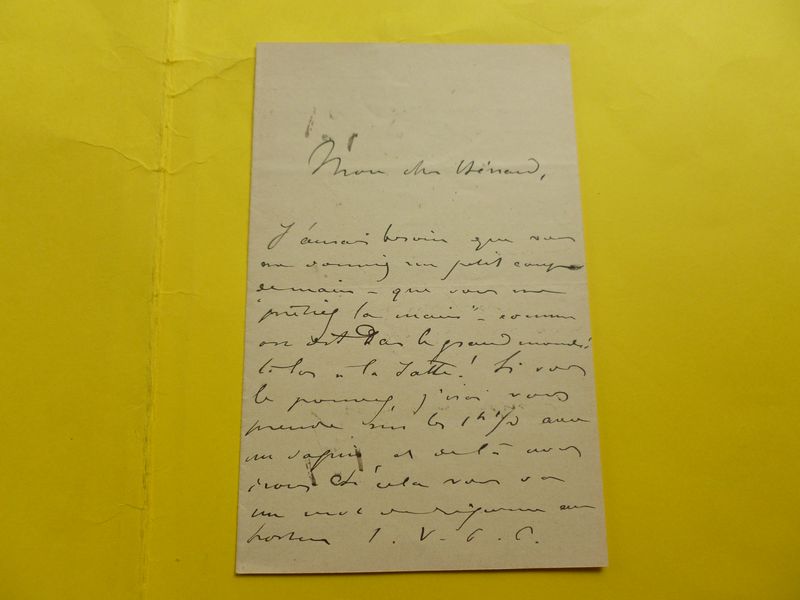 Mon cher Hénard,
J'aurais besoin que vous
me donniez un petit coup
de main - que vous me
"prêtiez la main" - comme
on dit dans le grand monde!
à la Jatte! Si vous
le pouvez, j'irai vous
prendre sur les 1h 1/2 avec
un et de là nous
irons Si cela vous va
un mot de réponse au
porteur